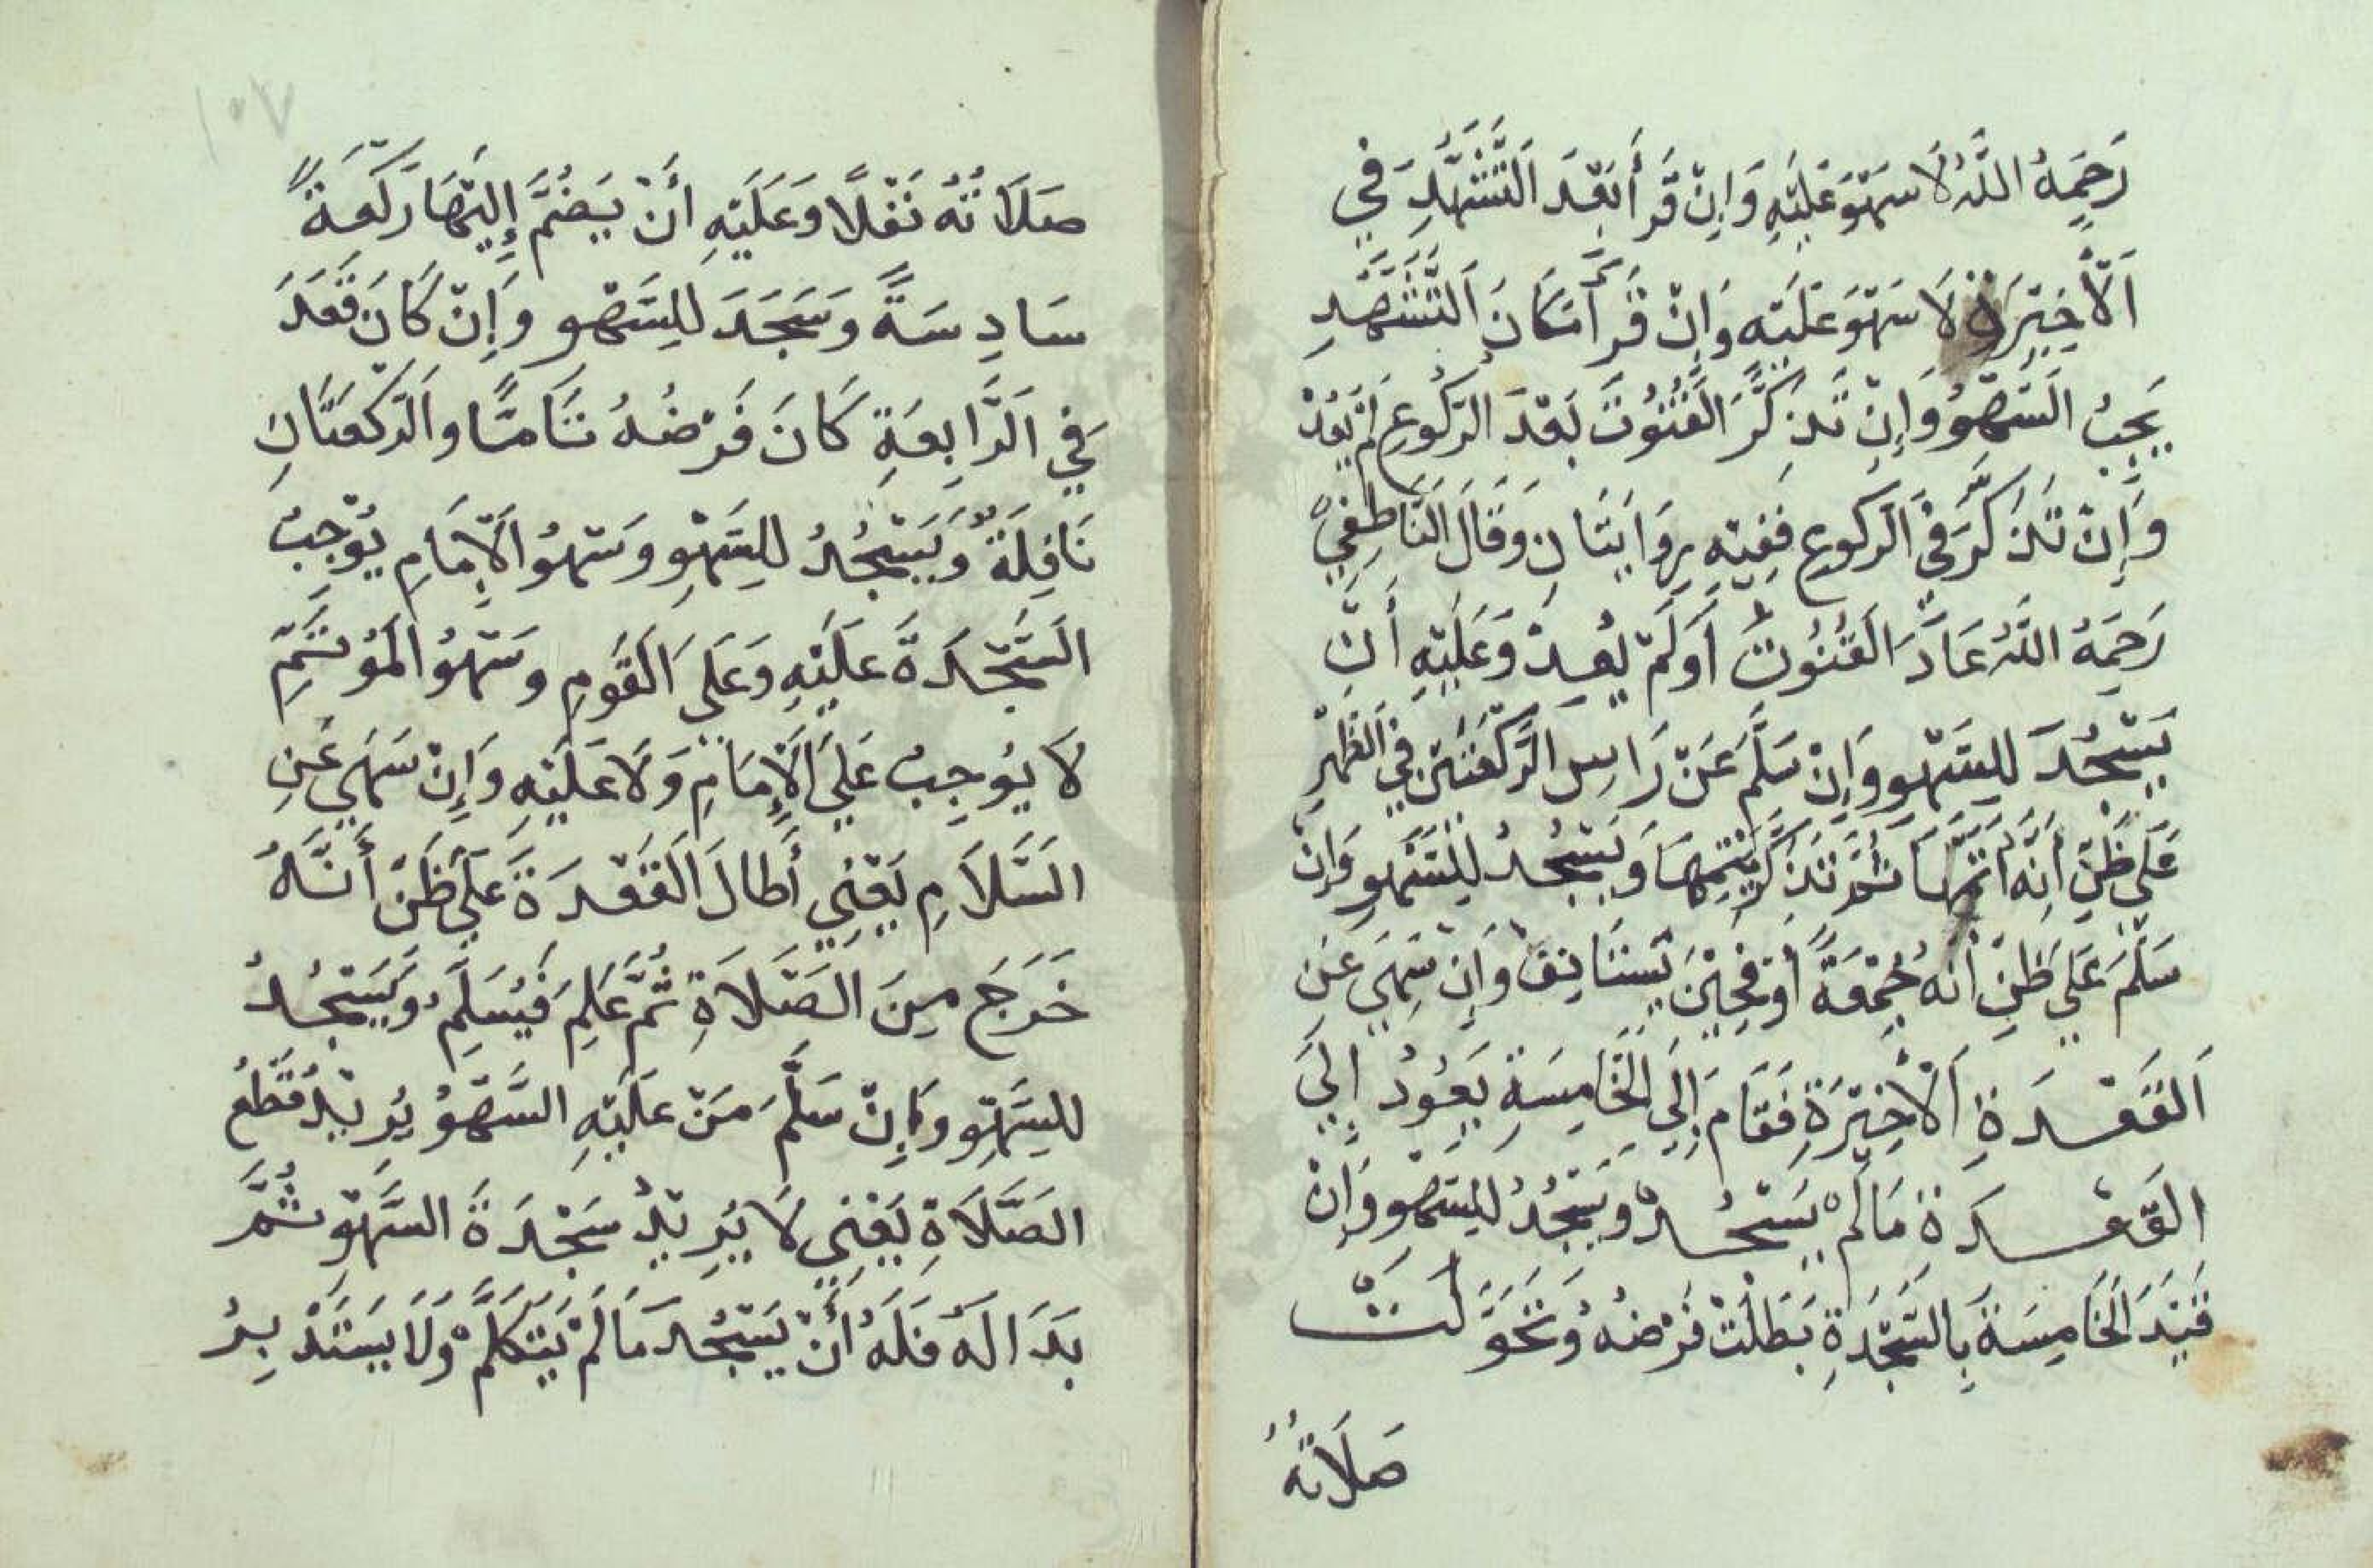 رَحِمَهُ اللَّهُ لَا سَهْوَ عَلَيْهِ وَاِنْ قَرَأَ بَعْدَ التَّشَهُّدِ فِي
اَلْاَخِيْرَةِ لَا سَهْوَ عَلَيْهِ وَاِنْ قَرَأَ مَكَانَ اَلتَّشَهُّدِ
يَجِبُ السَّهْوُ وَاِنْ تَذَكَّرَ الْقُنُوْتَ بَعْدَ الرُّكُوْعِ لَمْ يَعُدْ
وَاِنْ تَذَكَّرَ فِي الرُّكُوعِ فَفِيْهِ رِوَايَتَانِ وَقَالَ النَّاطِفِيْ
رَحِمَهُ اللَّهُ عَادَ الْقُنُوْتُ اَوْلَمْ يُعِدْ وَعَلَيْهِ أَنْ
يَسْجُدَ لِلسَّهْوِ وَاِنْ سَلَّمَ عَنْ رَاسِ الرَّكْعَتَيْنِ فِي الظُّهْرِ
عَلَى ظَنِّ اَنَّهُ اَتَمَّهَا ثُمَّ تَذَكَّرَ يُتِمُّهَا وَيَسْجُدُ لِلسَّهْوِ وَاِنْ
سَلَّمَ عَلَي ظَنِّ اَنَّهُ جُمْعَةً أَوْ فَجْرٌ يَسْتَانِفُ وَاِنْ سَهَي عَنِ
اَلْقَعْدَةِ اَلْاَخِيْرَةِ فَقَامَ اِلَي الْخَامِسَةِ يَعُوْدُ اِلَيَ
الْقَعْدَةِ مَالَمْ يَسْجُدْ وَيَسْجُدُ لِلسَّهْوِ وَاِنْ
قَيَّدَ الْخَامِسَةَ بِالسَّجْدَةِ بَطَلَتْ فَرْضُهُ وَتَحَوَّلَتْ
صَلَاتُهُ
صَلَاتُهُ نَفْلًا وَعَلَيْهِ اَنْ يَضُمَّ إِلَيْهَا رَكْعَةً
سَادِسَةً وَسَجَدَ لِلسَّهْوِ وَإِنْ كَانَ قَعَدَ
فِي الرَّابِعَةِ كَانَ فَرْضُهُ تَامًّا وَالرَّكْعَتَانِ
نَافِلَةٌ وَيَسْجُدُ لِلسَّهْوِ وَسَهْوُ الْاِمَامِ يُوْجِبُ
السَّجْدَةَ عَلَيْهِ وَعَلَي الْقَوْمِ وَسَهْوُ الْمُؤْتَمِّ
لَا يُوْجِبُ عَلَي الْإِمَامِ وَلَا عَلَيْهِ وَإِنْ سَهَي عَنِ
السَّلَامِ يَعْنِي أَطَالَ الْقَعْدَةَ عَلَي ظَنِّ أَنَّهُ
خَرَجَ مِنَ الصَّلَاةِ ثُمَّ عَلِمَ فَيُسَلِّمُ وَيَسْجُدُ
لِلسَّهْوِ وَاِنْ سَلَّمَ مَنْ عَلَيْهِ السَّهْوُ يُرِيْدُ قَطْعَ
الصَّلَاةِ يَعْنِي لَا يُرِيْدُ سَجْدَةَ السَّهْوِ ثُمَّ
بَدَا لَهُ فَلَهُ أَنْ يَسْجُدَ مَالَمْ يَتَكَلَّمْ وَلَا يَسْتَدْبِرُ